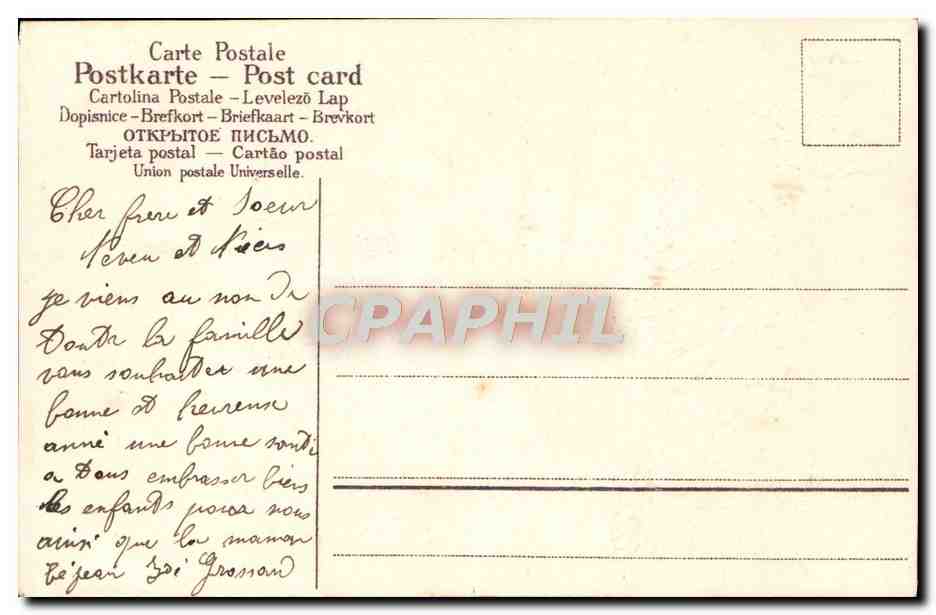 Carte Postale
Postkarte — Post card
Cartolina Postale – Levelező Lap
Dopisnice – Brefkort – Briefkaart – Brevkort
ОТКРЫТОЕ ПИСЬМО.
Tarjeta postal — Cartão postal
Union postale Universelle.
Cher frere et Soeur
Neveu et Nièces
je viens au non de
toute la famille
vous souhaiter une
bonne et heureuse
anné une bonne santé
a tous embrasser bien
les enfants pour nous
ainsi que la maman
CPAPHIL